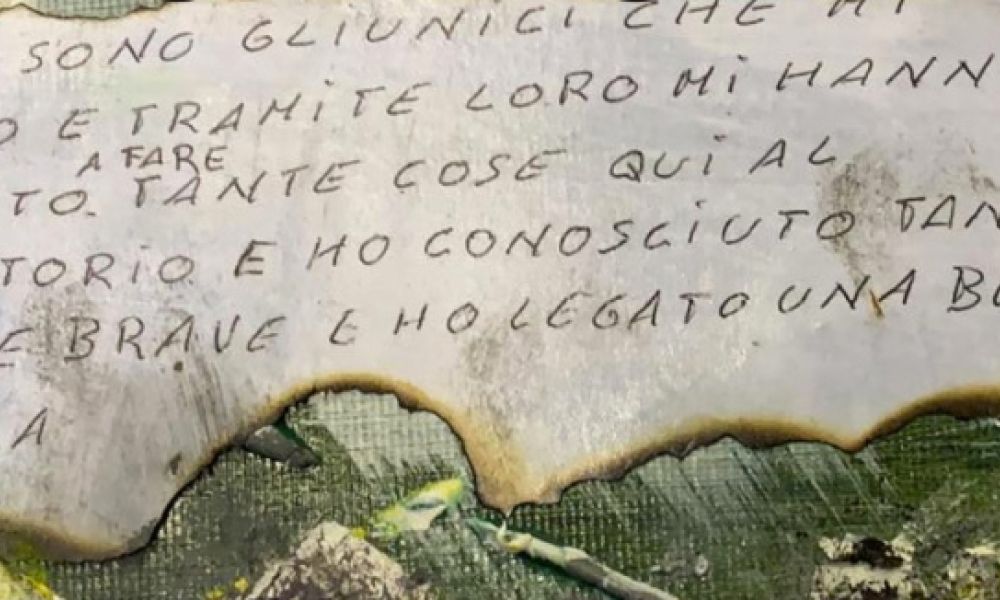 SONO GLIUNICI CHE MI
O E TRAMITE LORO MI HANN
A FARE
TO. TANTE COSE QUI AL
TORIO E HO CONOSCIUTO TAN
E BRAVE E HO LEGATO UNA B
A